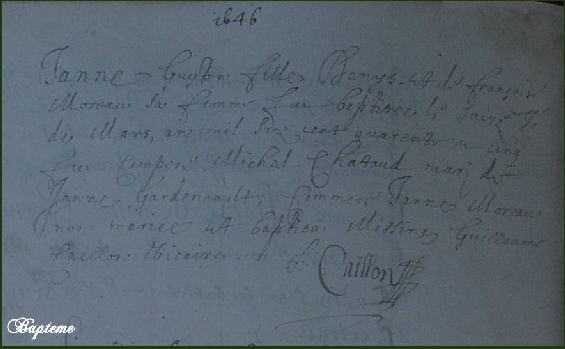 1646
Janne Guyton fille Denys et de françoise
Moreau sa femme fut baptisee le
de Mars, an mil six cent quarente cinq
fut comper Michel Chataud mari de
Janne Gardenault, commere Janne Moreau
non mariee et baptisa Missire Guillaume
Caillon vicaire G. Caillon
Bapteme